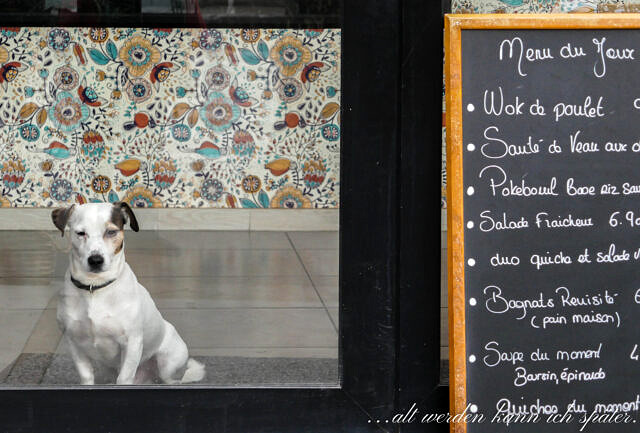 Menu du Jour
Wok de poulet
Sauté de Veau aux o
Pokeboul Base riz sau
Salade Fraicheur 6.90
duo quiche et salade v
Bagnats Revisité 6
(pain maison)
Soupe du moment 4
Boursin, épinards
Quiches du moment
...alt werden kann ich später.